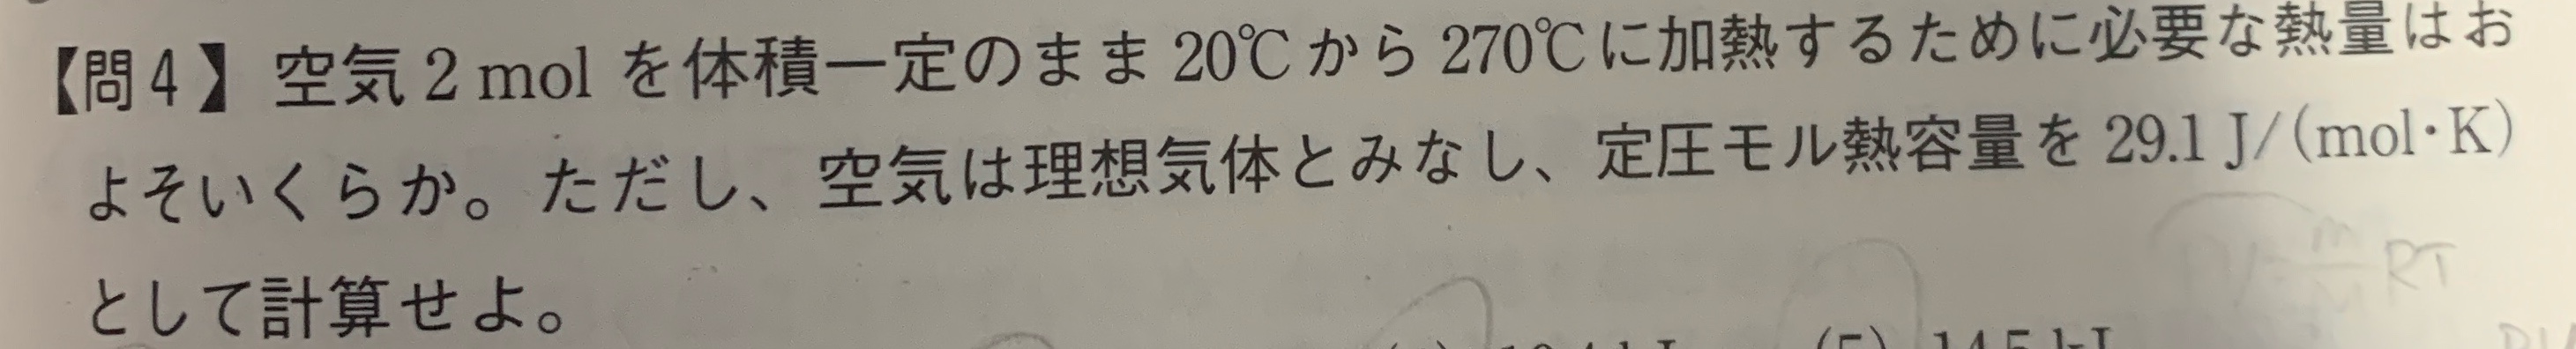 【問4】 空気 2 mol を体積一定のまま 20℃ から 270℃ に加熱するために必要な熱量はお
よそいくらか。ただし、空気は理想気体とみなし、定圧モル熱容量を 29.1 J/(mol·K)
として計算せよ。
RT
(5) 14.5 kJ